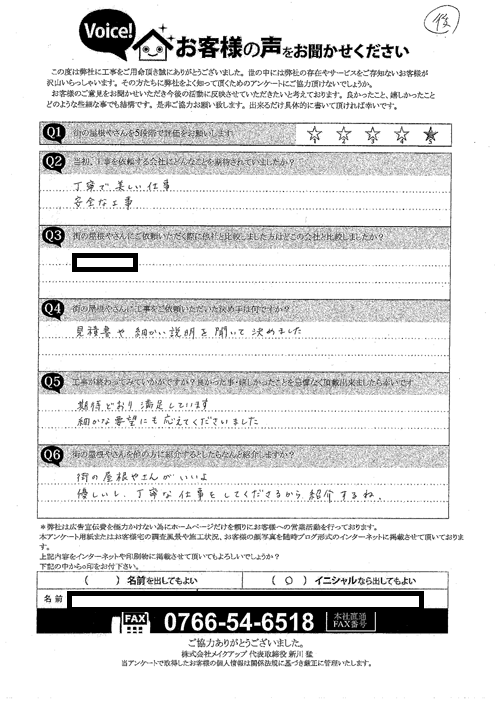 後
Voice!
お客様の声をお聞かせください
この度は弊社に工事をご用命頂き誠にありがとうございました。世の中には弊社の存在やサービスをご存知ないお客様が
沢山いらっしゃいます。その方たちに弊社をよく知って頂くためのアンケートにご協力頂けないでしょうか。
お客様のご意見をお聞かせいただき今後の活動に反映させていただきたいと考えております。良かったこと、嬉しかったこと
どのような些細な事でも結構です。是非ご協力お願い致します。出来るだけ具体的に書いて頂ければ幸いです。
Q1 街の屋根やさんを5段階で評価をお願いします
1 2 3 4 5
Q2 当初、工事を依頼する会社にどんなことを期待されていましたか?
丁寧で美しい仕事
安全な工事
Q3 街の屋根やさんにご依頼いただく際に他社と比較しました方はどこの会社と比較しましたか?
Q4 街の屋根やさんに工事をご依頼いただいた決め手は何ですか?
見積書や細かい説明を聞いて決めました
Q5 工事が終わってみていかがですか?良かった事・嬉しかったことを忌憚なく頂戴出来ましたら幸いです
期待どおり満足しています
細かな要望にも応えてくださいました
Q6 街の屋根やさんを他の方に紹介するとしたらなんと紹介しますか?
街の屋根やさんがいいよ
優しいし、丁寧な仕事をしてくださるから紹介するね。
*弊社は広告宣伝費を極力かけない為にホームページだけを頼りにお客様への営業活動を行っております。
本アンケート用紙またはお客様宅の調査風景や施工状況、お客様の顔写真を随時ブログ形式のインターネットに掲載させて頂いております。
上記内容をインターネットや印刷物に掲載させて頂いてもよろしいでしょうか?
下記の中から○印をお付下さい。
( ) 名前を出してもよい
( ○ ) イニシャルなら出してもよい
名前
FAX 0766-54-6518 本社直通 FAX番号
ご協力ありがとうございました。
株式会社メイクアップ 代表取締役 新川 猛
当アンケートで取得したお客様の個人情報は関係法規に基づき厳正に管理いたします。